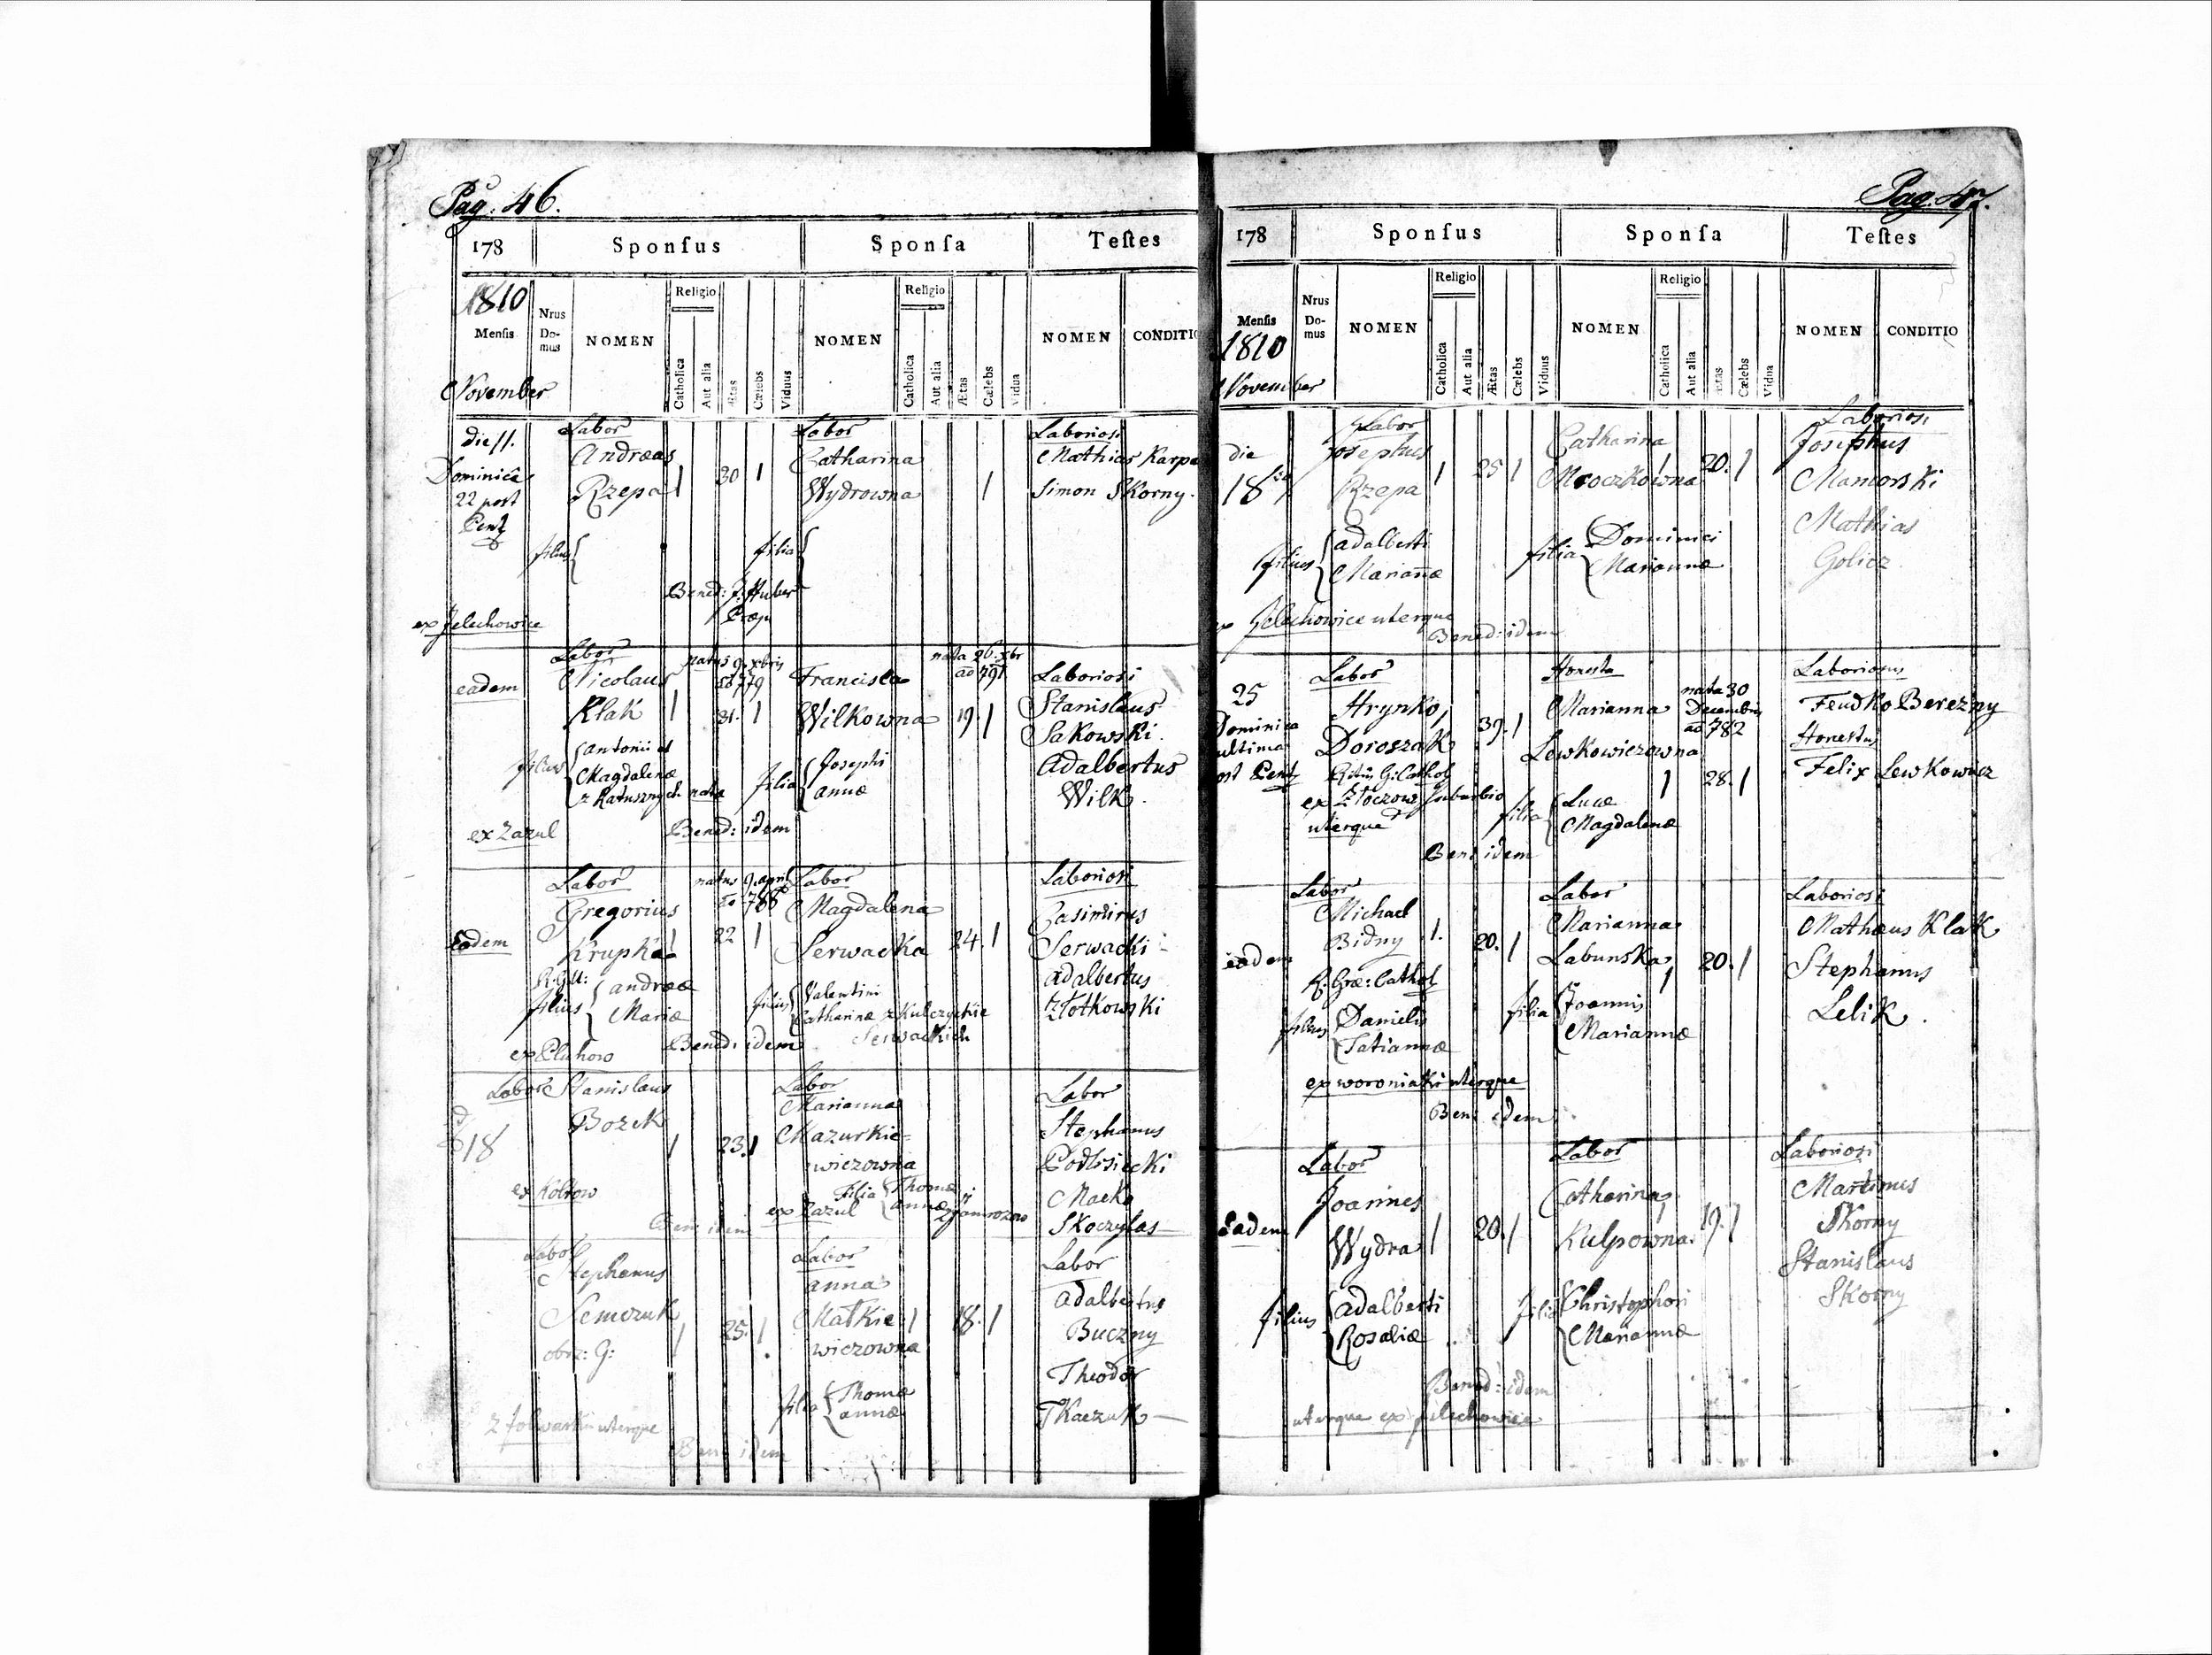 Pag: 46.
178
Sponsus
Sponsa
Testes
1810
Mensis
Nrus Do-mus
NOMEN
Religio
Catholica
Aut alia
Ætas
Cælebs
Viduus
NOMEN
Religio
Catholica
Aut alia
Ætas
Cælebs
Vidua
NOMEN
CONDITIO
November
die 11.
Dominica
22 post
Pent
Labor
Andreas
Rzepa 1 30 1
filius
Labor
Catharina
Wydrowna 1
filia
Laboriosi
Mathias Karpa
Simon Skorny.
Bened: J. Huber
Præp
ex Jelechowice
eadem
Labor
Nicolaus
Kłak 1 31. 1
natus 9. xbris
779
filius Antonii et
Magdalenæ
z Ratusznych natæ
Francisca
Wilkowna 19. 1
nata 26. xbr
ao 791
filia Josephi
Annæ
Laboriosi
Stanislaus
Sakowski.
Adalbertus
Wilk.
ex Zazul
Bened: idem
Eadem
Labor
Gregorius
Krupka 1 22 1
natus 9. april
788
R. G. U:
filius Andreæ
Mariæ
Labor
Magdalena
Serwacka 24. 1
Valentini
Catharinæ z Kulczyckie
Serwackich
Laboriosi
Casimirus
Serwacki
Adalbertus
Złotkowski
ex Pluhow
Bened: idem
18
Labor Stanislaus
Bozek
1 23. 1
ex Koltow
Labor
Marianna
Mazurkie-
wiczowna
Filia Thomæ
Annæ
ex Zazul
Labor
Stephanus
Podlisiecki
Macko
Skoczylas
Ben: idem
Labor
Stephanus
Semczuk
obrz: G:
1 25. 1
Labor
Anna
Matkie 1 18. 1
wiczowna
filia Thomæ
Annæ
Labor
Adalbertus
Buczny
Theodor
Tkaczuk
z folwarku uterque
Ben: idem
Pag. 47.
178
Sponsus
Sponsa
Testes
Mensis
1810
November
Nrus Do-mus
NOMEN
Religio
Catholica
Aut alia
Ætas
Cælebs
Viduus
NOMEN
Religio
Catholica
Aut alia
Ætas
Cælebs
Vidua
NOMEN
CONDITIO
die
18
Labor
Josephus
Rzepa 1 25 1
filius Adalberti
Mariannæ
Catharina
Mroczkowna 1 20. 1
filia Dominici
Mariannæ
Laboriosi
Josephus
Mamorski
Mathias
Golicz
ex Jelechowice uterque
Bened: idem
25
Dominica
ultima
post Pent
Labor
Hrynko 1 39. 1
Doroszak
Ritus G: Cathol
ex Złoczow suburbio
uterque
Honesta
Marianna
Lewkowiczowna
1 28. 1
nata 30
Decembris
ao 782
filia Lucæ
Magdalenæ
Laboriosus
Feudko Berezny
Honestus
Felix Lewkowicz
Ben: idem
eadem
Labor
Michael
Bidny 1. 20. 1
R. Græ: Cathol
filius Danielis
Tatiannæ
Labor
Marianna
Labunska 1 20. 1
filia Joannis
Mariannæ
Laboriosi
Mathæus Klak
Stephanus
Lelik.
ex woroniaki uterque
Ben: idem
Eadem
Labor
Joannes
Wydra 1 20. 1
filius Adalberti
Rosaliæ
Labor
Catharina
Kulpowna 1 19. 1
filia Christophori
Mariannæ
Laboriosi
Martinus
Skorny
Stanislaus
Skorny
Bened: idem
uterque ex Jelechowice